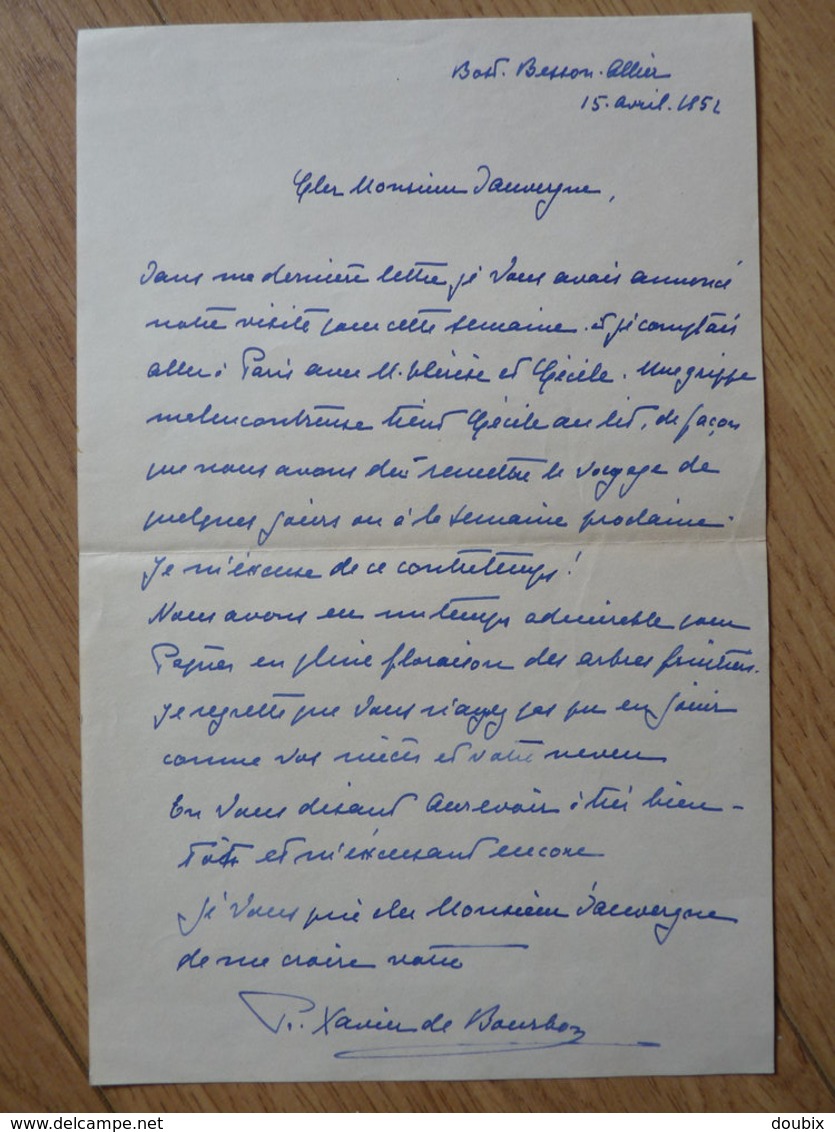 Bost. Besson. Allier
15. avril. 1952
Cher Monsieur Dauvergne,
Dans ma dernière lettre je Vous avais annoncé
notre visite pour cette semaine. et je comptais
aller à Paris avec M. Thérèse et Cécile. Une grippe
malencontreuse tient Cécile au lit, de façon
que nous avons dû remettre le voyage de
quelques jours ou à la semaine prochaine.
Je m'excuse de ce contretemps!
Nous avons eu un temps admirable pour
Pâques en pleine floraison des arbres fruitiers.
Je regrette que Vous n'ayez pas pu en jouir
comme vos nièces et votre neveu
En Vous disant Aurevoir à très bien-
tôt et m'excusant encore
je Vous prie cher Monsieur Dauvergne
de me croire votre
Pr. Xavier de Bourbon
doubix